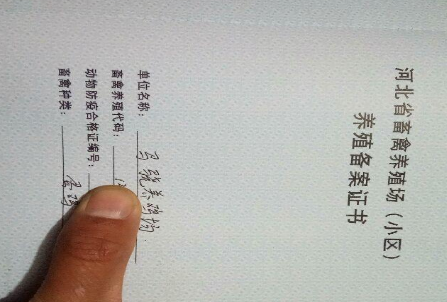 河北省畜禽养殖场（小区）
养殖备案证书
单位名称：养鸡场
畜禽养殖代码：
动物防疫合格证编号：
畜禽种类：